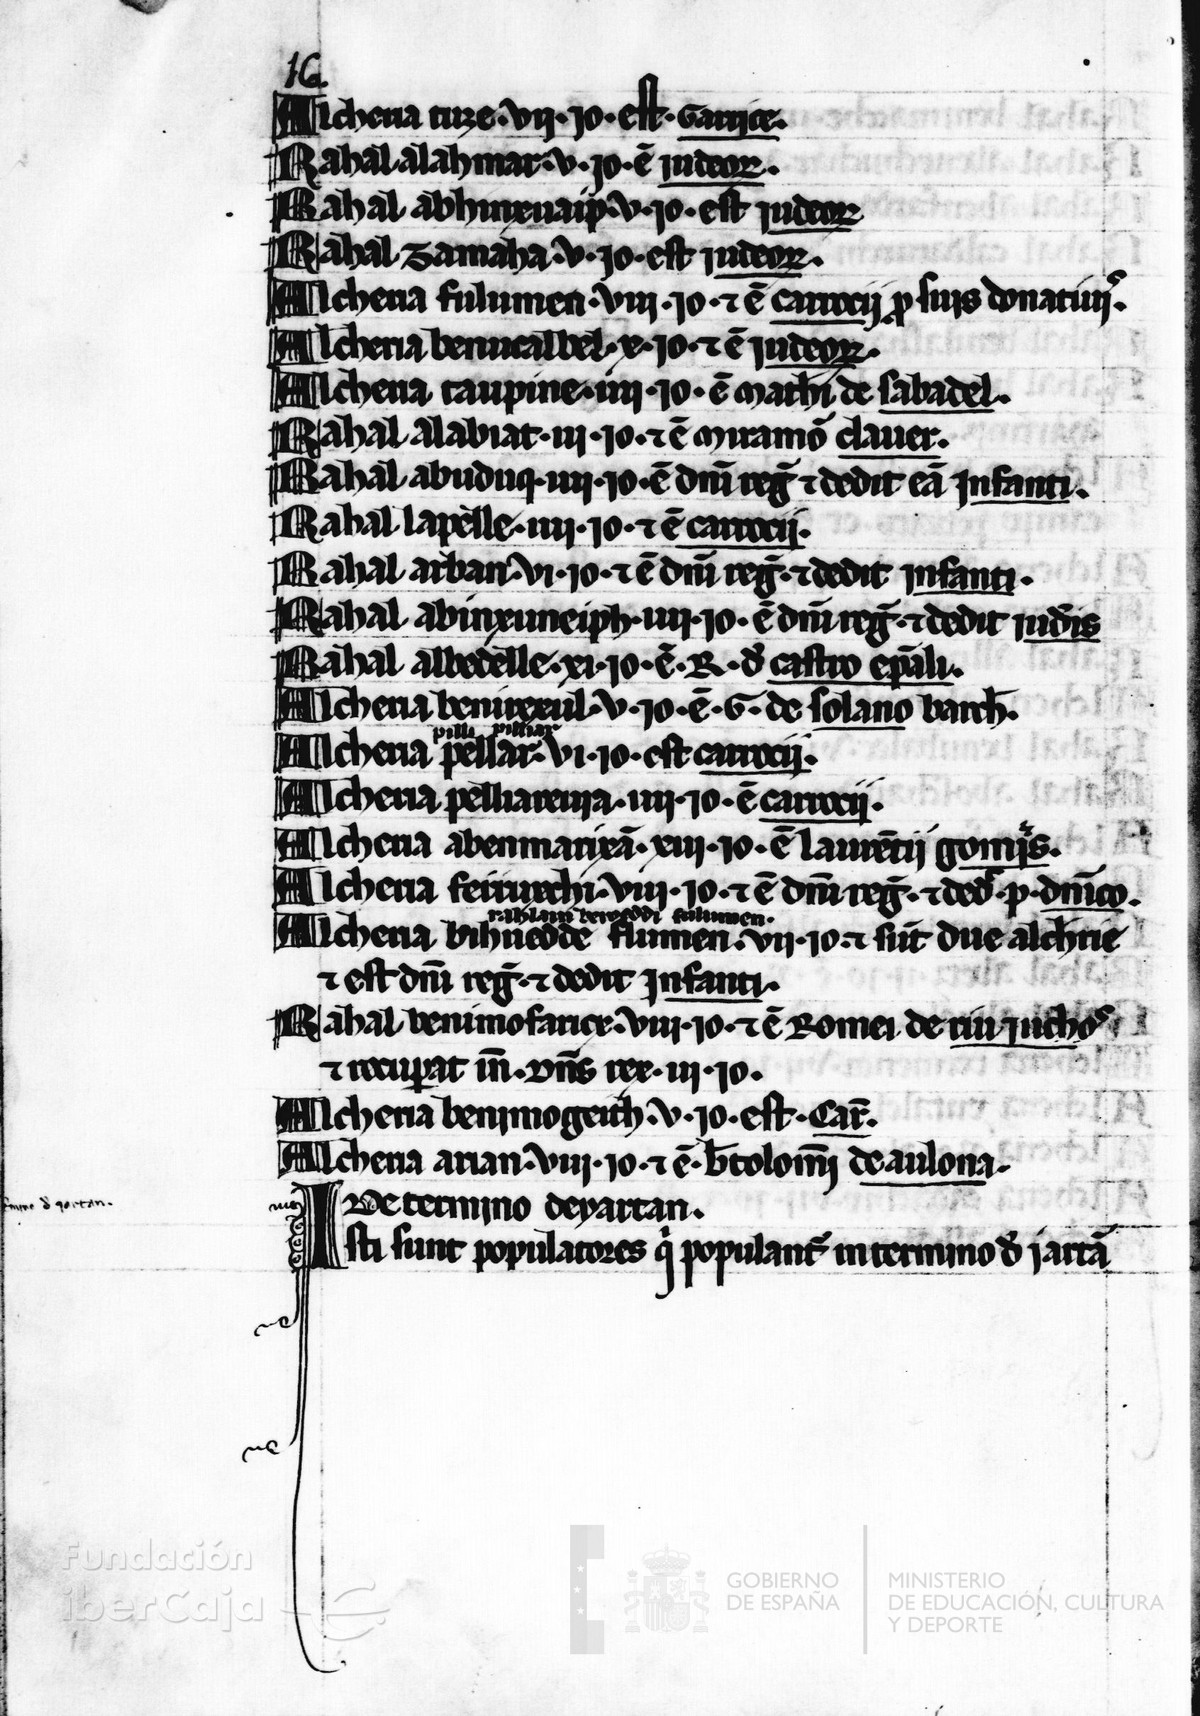 16
Alcheria ruze · vii · io · est · Garrice ·
Rahal alahmar · v · io · ẽ iudeoꝝ ·
Rahal abhinxuaip · v · io · est iudeoꝝ
Rahal zamaha · v · io · est iudeoꝝ ·
Alcheria fulumen · viii · io · ⁊ ẽ carrocij ꝓ suis donatiuis ·
Alcheria benucalbel · x · io · ⁊ ẽ iudeoꝝ ·
Alcheria taupine · iiii · io · ẽ mathi de sabadel ·
Rahal alabiat · iii · io · ⁊ ẽ miramõ clauer ·
Rahal abuduq · iiii · io · ẽ dñi reg̃ ⁊ dedit eã Infanti ·
Rahal lapelle · iiii · io · ⁊ ẽ carrocij ·
Rahal arban · vi · io · ⁊ ẽ dñi reg̃ · ⁊ dedit Infanti ·
Rahal abinxuneiph · iiii · io · ẽ dñi reg̃ · ⁊ dedit iud̃is
Rahal albedelle · xi · io · ẽ · R · d̃ castro ep̃ali ·
Alcheria benirexul · v · io · ẽ · G · de solano barch̃ ·
pilli pilliar
Alcheria pellar · vi · io · est carrocij ·
Alcheria pelliareira · iiii · io · ẽ carrocij ·
Alcheria abenmarixã · xiii · io · ẽ laurẽtij gomis ·
Alcheria ferrutxhi · viii · io · ⁊ ẽ dñi reg̃ · ⁊ ded̃ · p · dñico ·
rahlam benueddi fulumen ·
Alcheria bihuedde flumen · vii · io · ⁊ sũt due alch̃rie
⁊ est dñi reg̃ · ⁊ dedit Infanti ·
Rahal benimofarice · viii · io · ⁊ ẽ Romei de riu iuchos
⁊ recuperat iñ · dñs rex · iii · io ·
Alcheria benimogeith · v · io · est · Car̃ ·
Alcheria arian · viii · io · ⁊ ẽ · b̃tolom̃i de aulona ·
De termino deyartan ·
Isti sunt populatores q̃ populant̃ in termino d̃ iartã
Fundación
iberCaja
GOBIERNO
DE ESPAÑA
MINISTERIO
DE EDUCACIÓN, CULTURA
Y DEPORTE